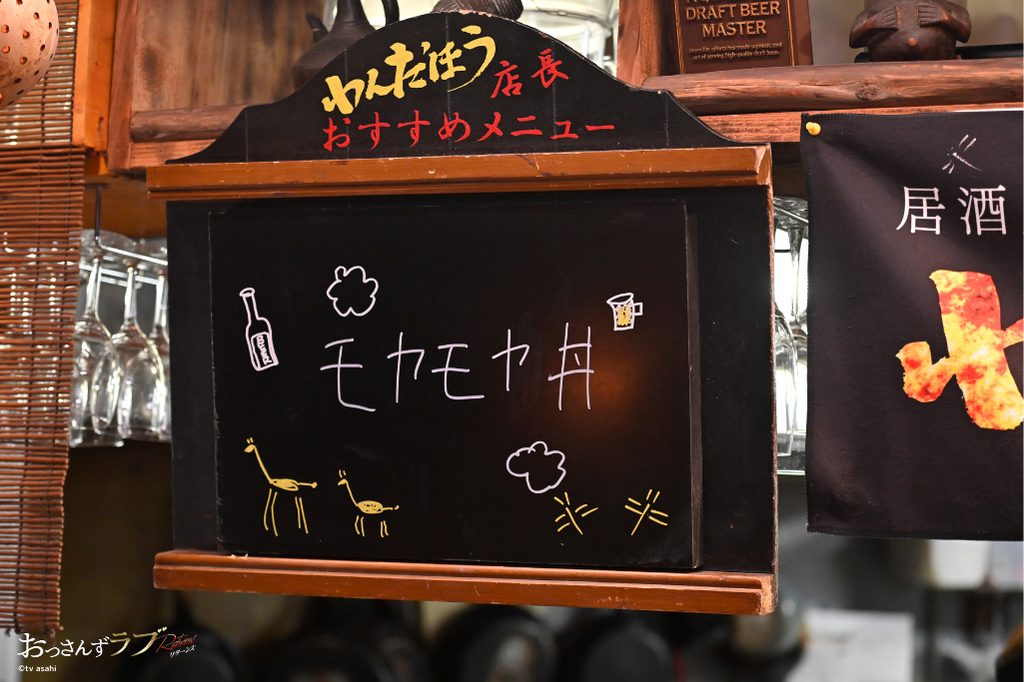 DRAFT BEER
MASTER
わんだほう店長
おすすめメニュー
居酒
モヤモヤ丼
おっさんずラブ
リターンズ
©tv asahi